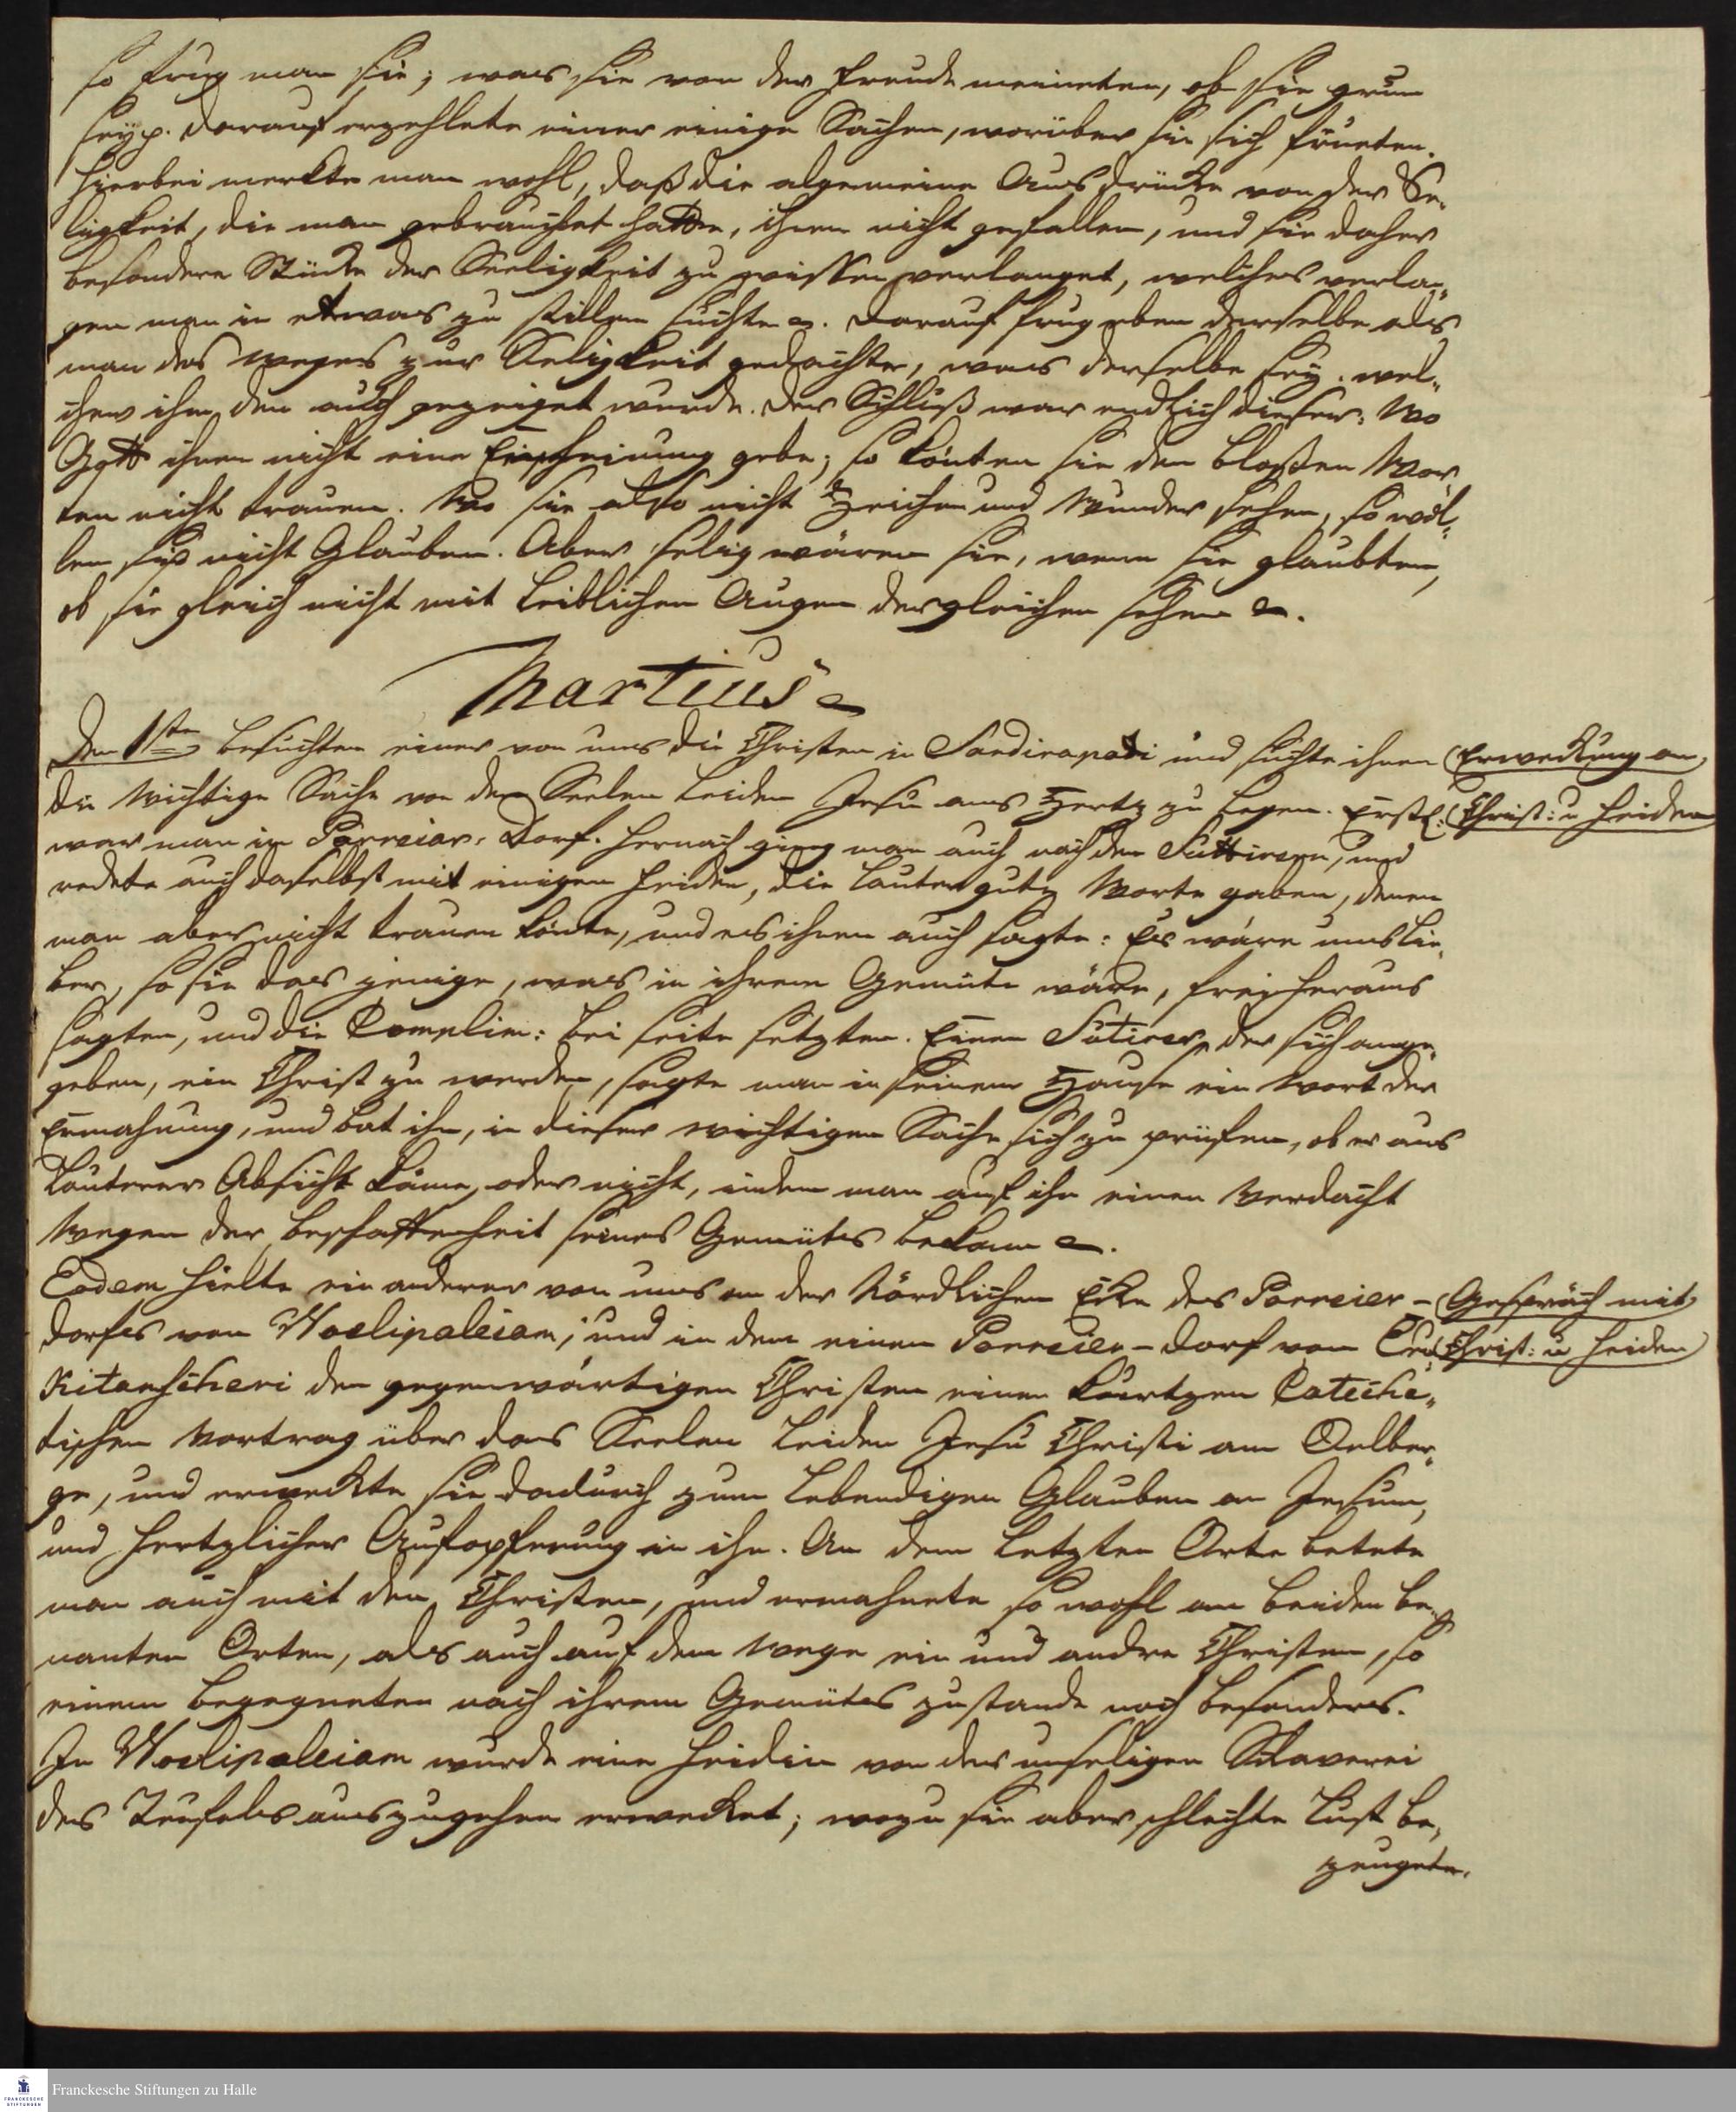 so frug man sie; was sie von der Freude meineten, ob sie grün
sey p. Darauf erzehlete einer einige Sachen, worüber sie sich freueten.
Hierbei merckte man wohl, daß die algemeine Ausdrücke von der Se-
ligkeit, die man gebrauchet hatte, ihnen nicht gefallen, und sie daher
besondere Stücke der Seeligkeit zu wissen verlanget, welches verlan-
gen man in etwas zu stillen suchte. Darauf frug eben derselbe als
man des Weges zur Seligkeit gedachte, was derselbe sey. wel-
cher ihm den auch gezeiget wurde. Der Schluß war endlich dieser: Wo
Gott ihnen nicht eine Erscheinung gebe; so könten sie den bloßen Wor-
ten nicht trauen. Wo sie also nicht Zeichen und Wunder sehen, so wol-
len sie nicht Glauben. Aber selig wären sie, wenn sie glaubten,
ob sie gleich nicht mit Leiblichen Augen dergleichen sehen.
Martius
Den 1ste besuchten einer von uns die Christen in Sandirapadi und suchte ihnen
Erweckung an
die Wichtige Sache von dem Seelen Leiden Jesu ans Hertz zu legen. Erstl.
Christ: u Heiden
war man im Parreiar-Dorf. Hernach ging man auch nach den Suttirern, und
redete auch daselbst mit einigen Heiden, die lauter gute Worte gaben, denen
man aber nicht trauen konte, und es ihnen auch sagte: Es wäre uns lie-
ber, so sie das jenige, was in ihrem Gemüte wäre, frei heraus
sagten, und die Complim: bei seite setzten. Einen Sutirer, der sich ange-
geben, ein Christ zu werden, sagte man in seinem Hause ein Wort der
Ermahnung, und bat ihn, in dieser wichtigen Sache sich zu prüfen, ob er aus
Lauterer Absicht käme, oder nicht, indem man auf ihn einen Verdacht
Wegen der Beschaffenheit seines Gemütes bekam.
Eodem hielte ein anderer von uns an der Nördlichen Ecke des Parreier-
Gespräch mit
dorfes von Woelipaleiam; und in dem einen Parreier-dorf von Eru
Christ: u Heiden
Kitanscheri den gegenwärtigen Christen einen kurtzen Cateche-
tischen Vortrag über das Seelen Leiden Jesu Christi am Oelber-
ge, und erweckte sie dadurch zum Lebendigen Glauben an Jesum,
und hertzlicher Aufopferung in ihn. An dem letzten Orte betete
man auch mit den Christen, und ermahnete so wohl an beiden be-
nanten Orten, als auch auf dem Wege ein und andre Christen, so
einem begegneten nach ihrem Gemütes zustande noch besonders.
In Woelipaleiam wurde eine Heidin von der unseligen Sclaverei
des Teufels auszugehen erwecket; wozu sie aber schlechte Lust be-
zeugete.
Franckesche Stiftungen zu Halle
FRANCKESCHE
STIFTUNGEN